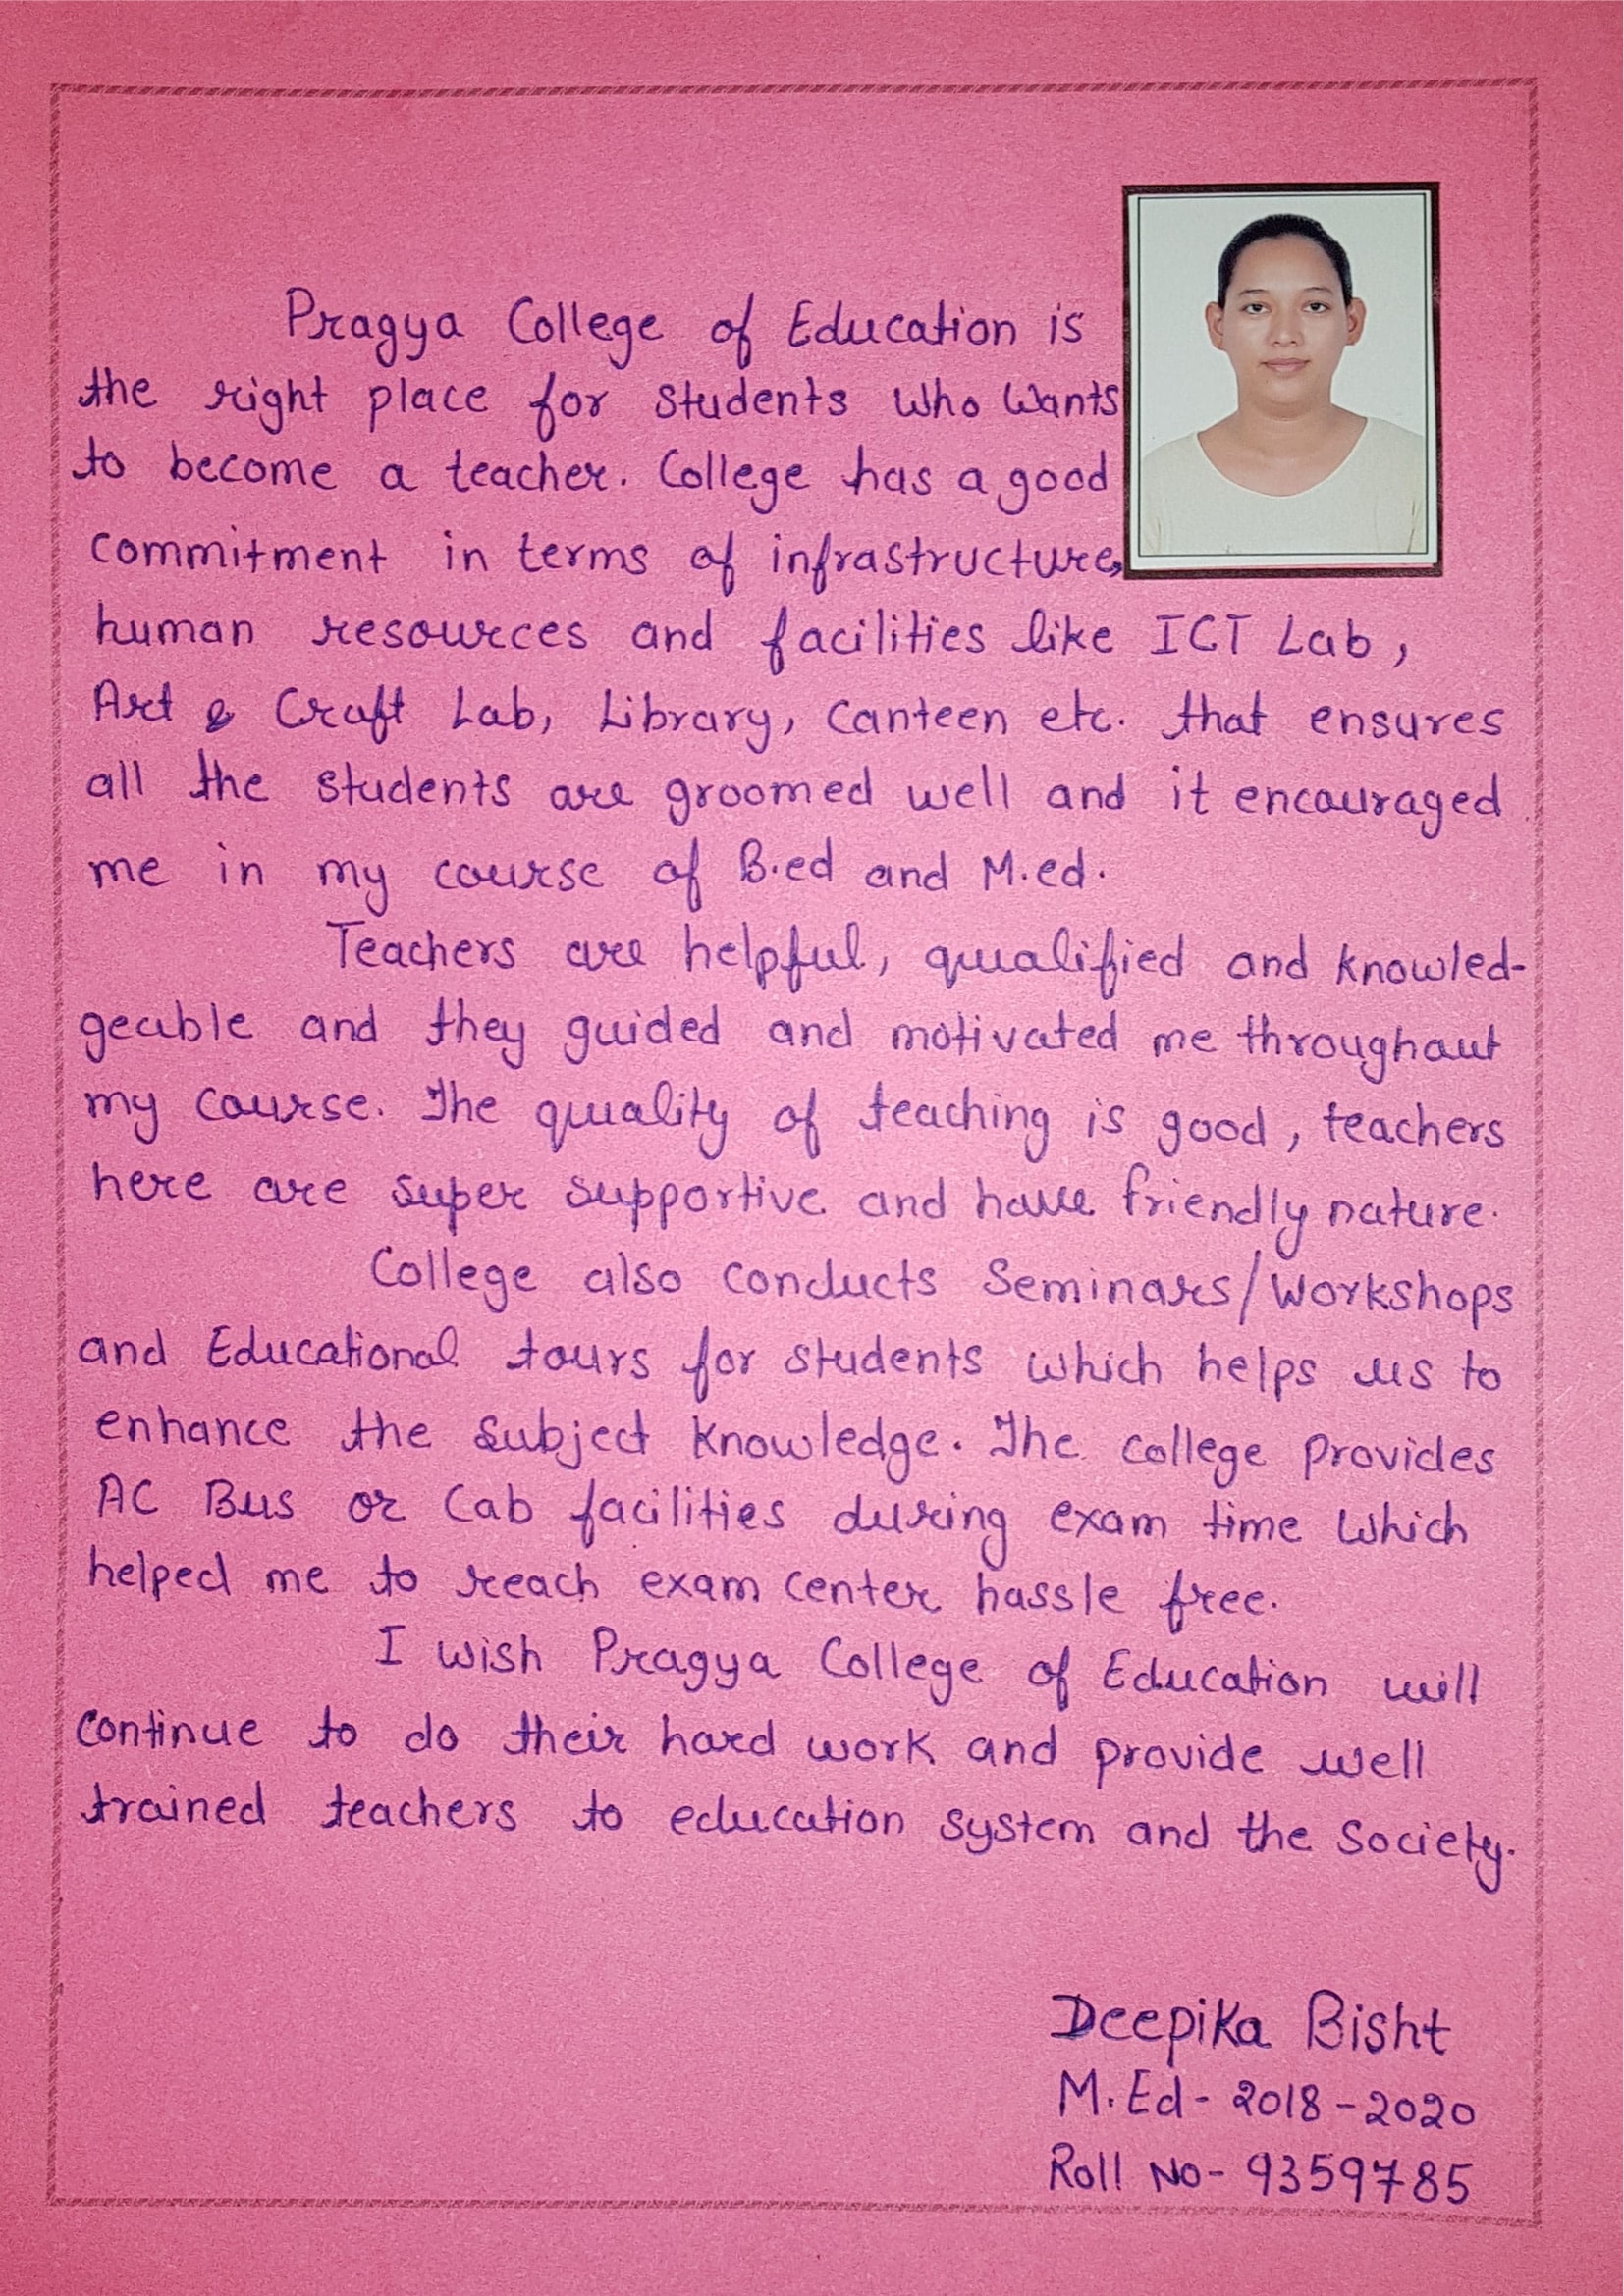 Pragya College of Education is
the right place for students who wants
to become a teacher. College has a good
commitment in terms of infrastructure,
human resources and facilities like ICT Lab,
Art & Craft Lab, Library, Canteen etc. that ensures
all the students are groomed well and it encouraged
me in my course of B.ed and M.ed.
Teachers are helpful, qualified and knowled-
geable and they guided and motivated me throughout
my course. The quality of teaching is good, teachers
here are super supportive and have friendly nature.
College also conducts Seminars/Workshops
and Educational tours for students which helps us to
enhance the subject knowledge. The college provides
AC Bus or Cab facilities during exam time which
helped me to reach exam center hassle free.
I wish Pragya College of Education will
continue to do their hard work and provide well
trained teachers to education system and the Society.
Deepika Bisht
M.Ed- 2018-2020
Roll No- 9359785